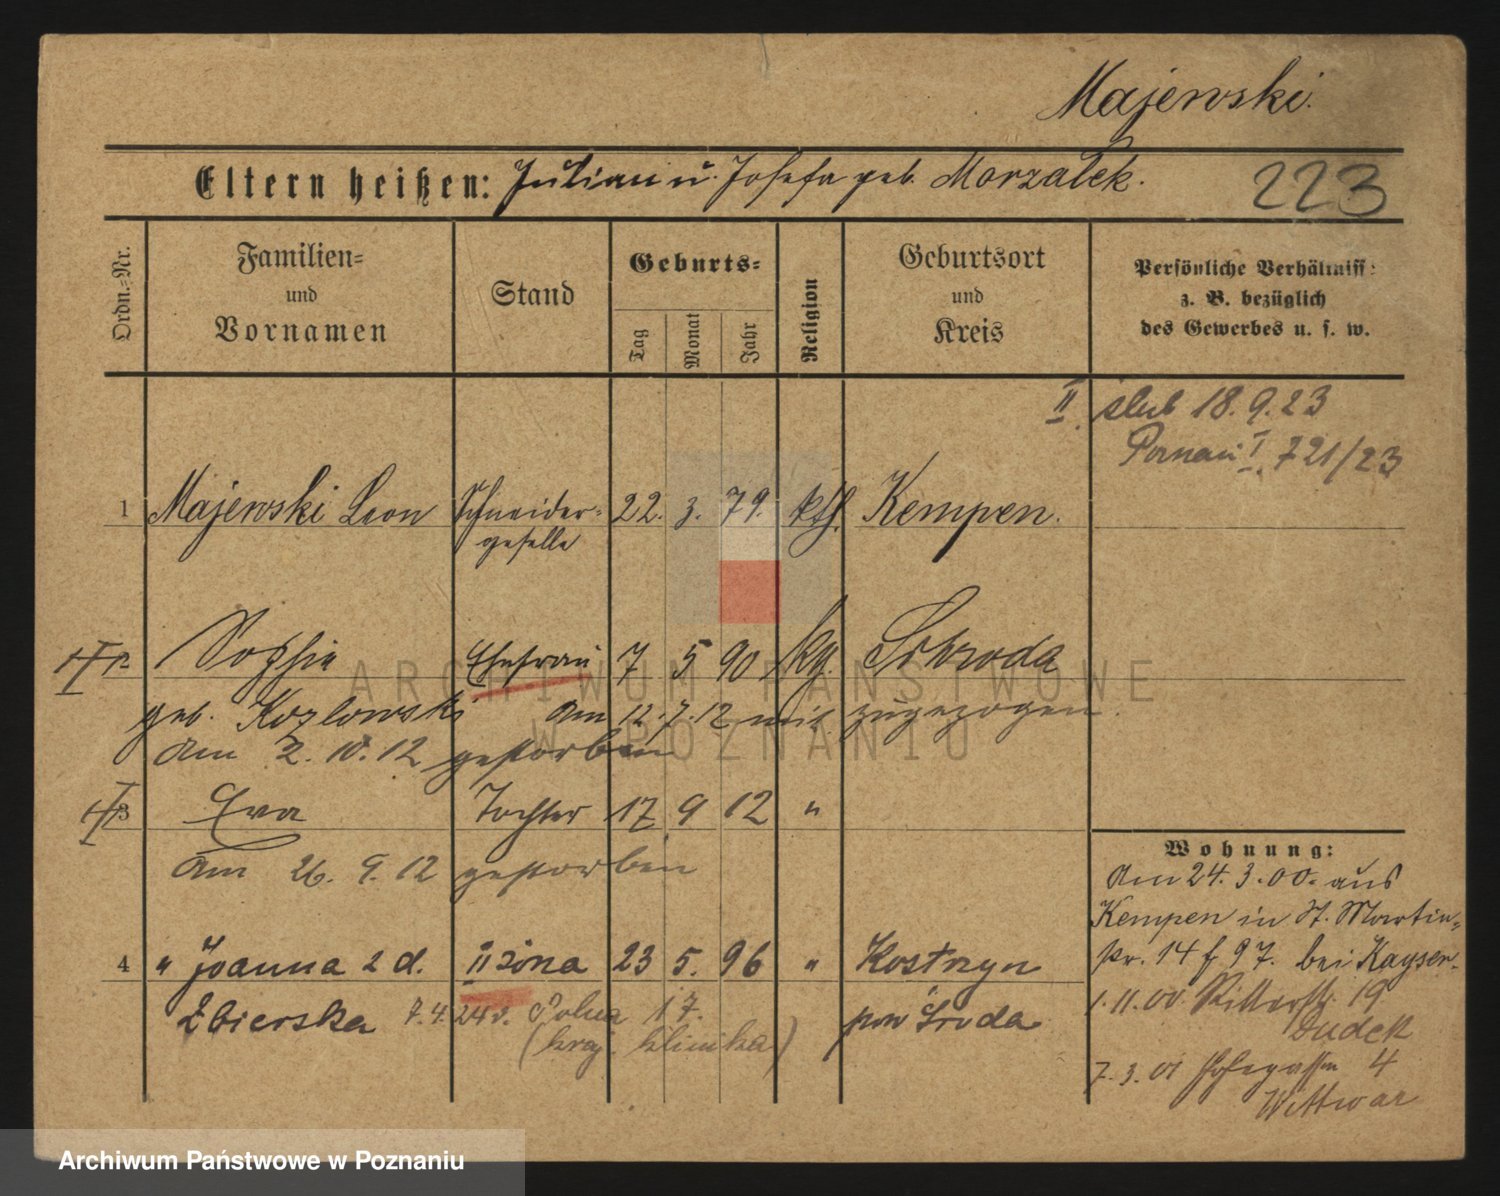 Majewski.
Eltern heißen: Julian u. Josefa geb. Marzalek.
223
Ordn.-Nr.
Familien-
und
Vornamen
Stand
Geburts-
Tag
Monat
Jahr
Religion
Geburtsort
und
Kreis
Persönliche Verhältniss:
z. B. bezüglich
des Gewerbes u. s. w.
II. ślub 18. 9. 23
Poznań I. 721/23
1 Majewski Leon Schneider- 22. 3. 79. kth. Kempen.
geselle
2 Sophie Ehefrau 7 5 90 kg. Schroda
geb. Kozlowski am 12. 7. 12 mit zugezogen.
am 2. 10. 12 gestorben
3 Eva Tochter 17 9 12 "
am 26. 9. 12 gestorben
4 " Joanna 2 d. II żona 23 5. 96 " Kostrzyn
Zbierska 7. 4. 24 Polna 17. pow Środa
klinika)
Wohnung:
Am 24. 3. 00. aus
Kempen in St. Martin-
str. 14 f 97. bei Kayser.
1. 11. 00 Ritterstr. 19
Dudek
7. 3. 01 4
Wittwar
ARCHIWUM PAŃSTWOWE
W POZNANIU
Archiwum Państwowe w Poznaniu